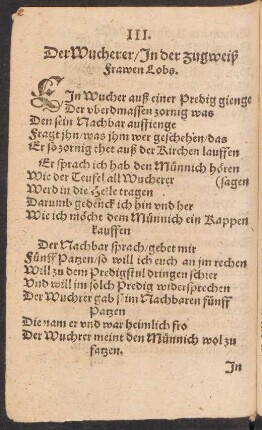 III.
Der Wucherer/In der zugweiß
Frawen Lobs.
EIn Wucher auß einer Predig gienge
Der vberdmassen zornig was
Den sein Nachbar auffienge
Fragt jhn/was jhm wer geschehen/das
Er so zornig thet auß der Kirchen lauffen
Er sprach ich hab den Münnich hören
Wie der Teufel all Wucherer (sagen
Werd in die Helle tragen
Darumb gedenck ich hin vnd her
Wie ich möcht dem Münnich ein Kappen
kauffen
Der Nachbar sprach/gebet mir
Fünff Patzen/so will ich euch an jm rechen
Will zu dem Predigstul dringen schier
Vnd will jm solch Predig widersprechen
Der Wuchrer gab seim Nachbaren fünff
Patzen
Die nam er vnd war heimlich fro
Der Wuchrer meint den Münnich wol zu
fatzen.
In